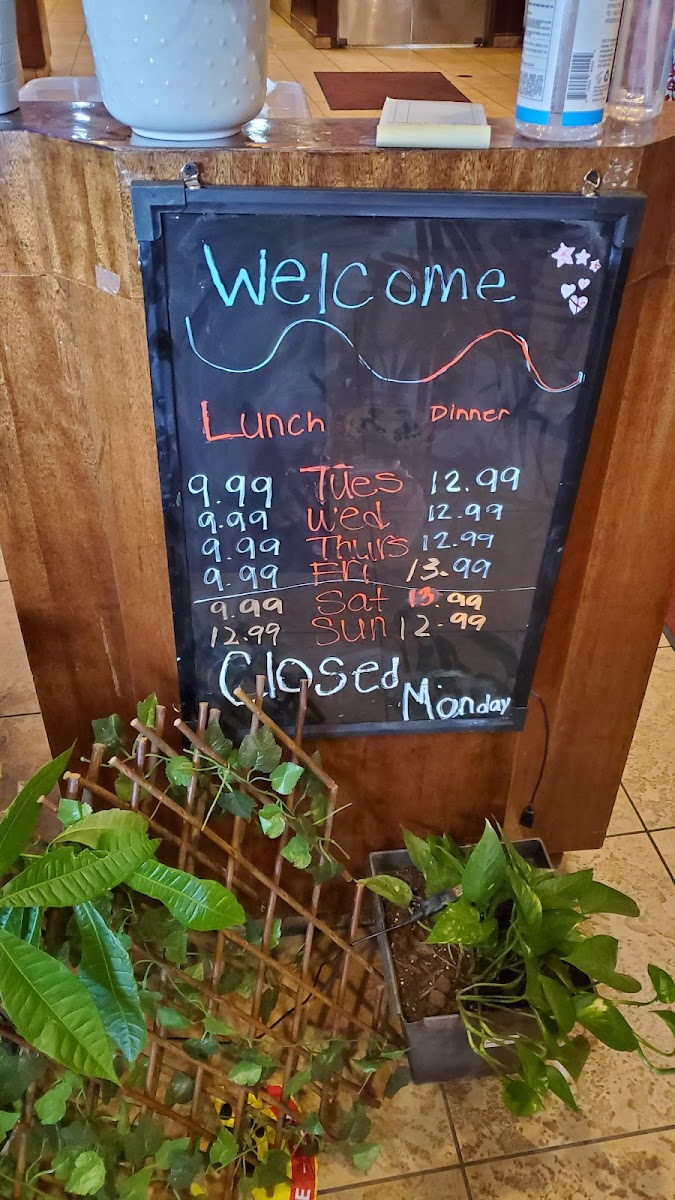 Welcome
Lunch Dinner
9.99 Tues 12.99
9.99 Wed 12.99
9.99 Thurs 12.99
9.99 Fri 13.99
9.99 Sat 13.99
12.99 Sun 12.99
Closed Monday